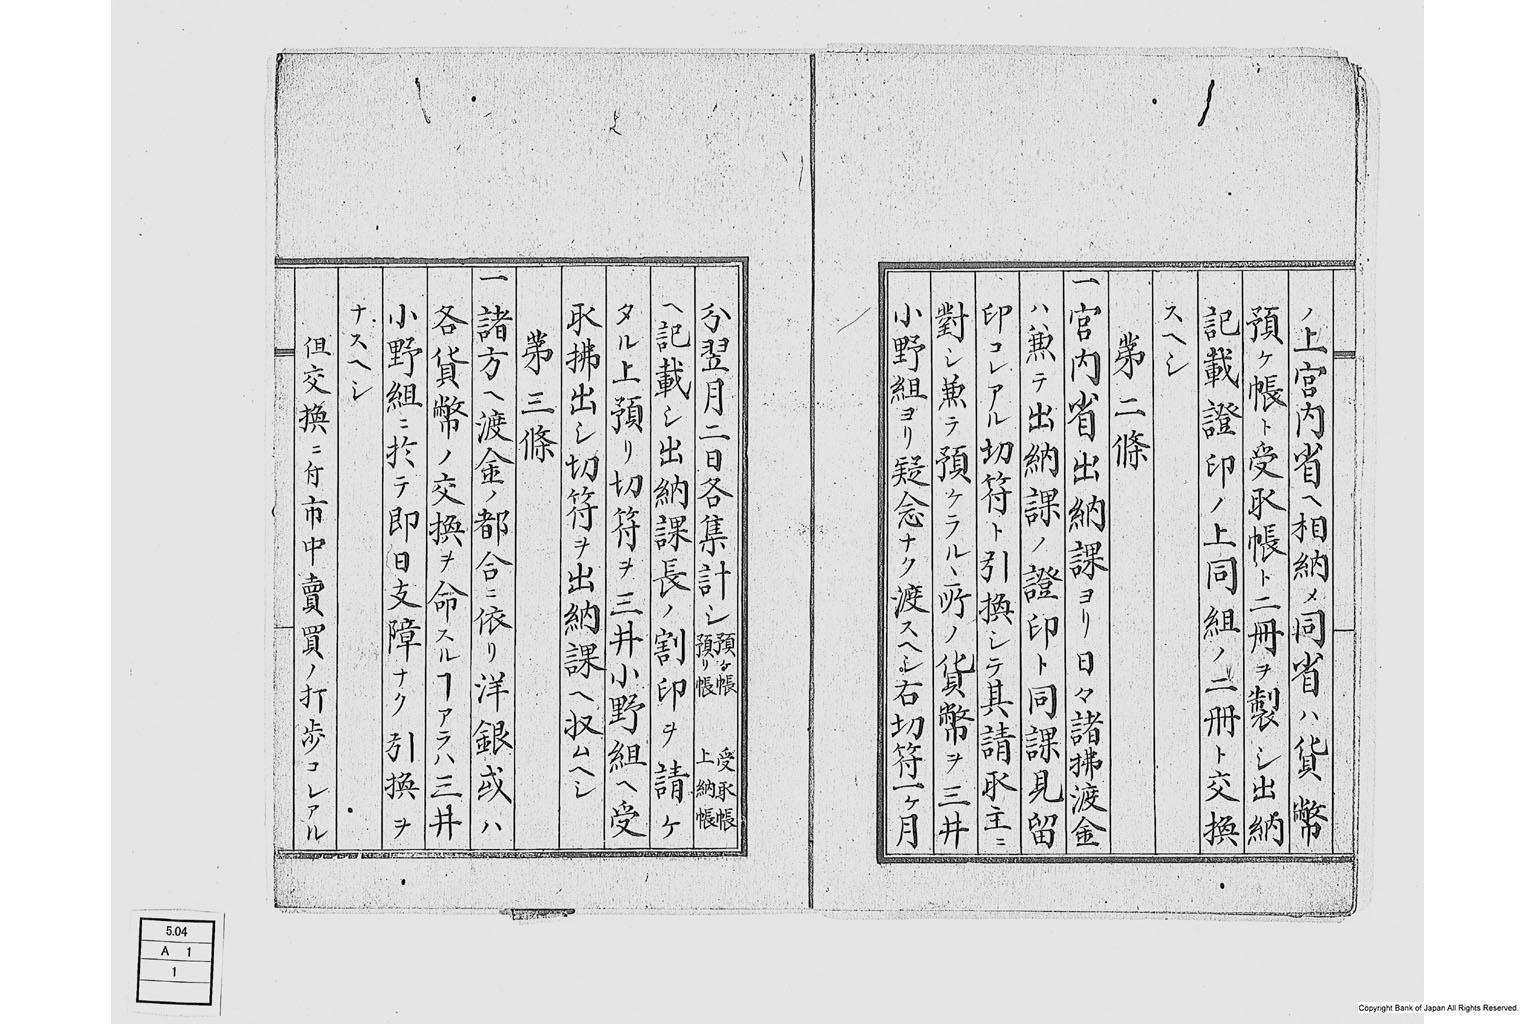 ノ上宮内省ヘ相納メ同省ハ貨幣
預ケ帳ト受取帳ト二冊ヲ製シ出納
記載證印ノ上同組ノ二冊ト交換
スヘシ
第二條
一宮内省出納課ヨリ日々諸拂渡金
ハ兼テ出納課ノ證印ト同課見留
印コレアル切符ト引換シテ其請取主ニ
對シ兼テ預ケラルヽ所ノ貨幣ヲ三井
小野組ヨリ疑念ナク渡スヘシ右切符一ケ月
分翌月二日各集計シ預ケ帳預リ帳 受取帳上納帳
ヘ記載シ出納課長ノ割印ヲ請ケ
タル上預リ切符ヲ三井小野組ヘ受
取拂出シ切符ヲ出納課ヘ収ムヘシ
第三條
一諸方ヘ渡金ノ都合ニ依リ洋銀或ハ
各貨幣ノ交換ヲ命スルヿアラハ三井
小野組ニ於テ即日支障ナク引換ヲ
ナスヘシ
但交換ニ付市中賣買ノ打歩コレアル
5.04
A 1
1
Copyright Bank of Japan All Rights Reserved.